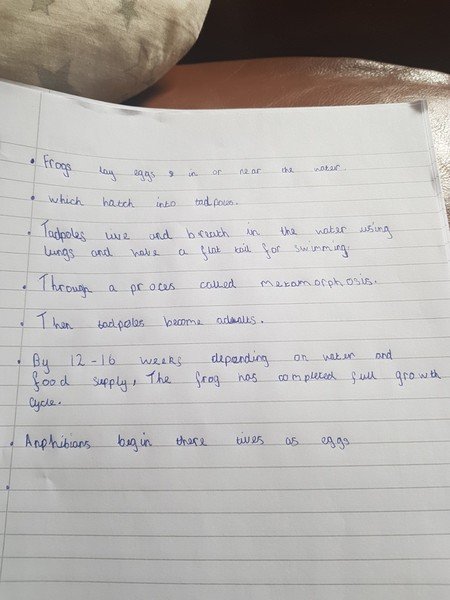 • Frogs lay eggs in or near the water.
• which hatch into tadpoles.
• Tadpoles live and breath in the water using
lungs and have a flat tail for swimming.
• Through a proces called metamorphosis.
• Then tadpoles become adualts.
• By 12-16 weeks depending on water and
food supply, The frog has completed full growth
cycle.
• Amphibians begin there lives as eggs
•